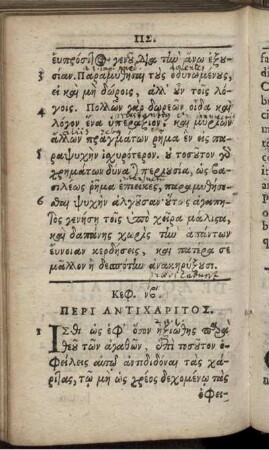 ΠΣ.
ευπρόσιτος γενοῦ διὰ τῶν ἄνω ἐξου-
3 σίαν. Παραμυθῆσαι τοὺς ὀδυνωμένους,
εἰ καὶ μὴ δώροις, ἀλλ' οὖν τοῖς λό-
4 γοις. Πολλῶν γὰρ δωρεῶν οἶδα καὶ
λόγον ἕνα ὑπεραίρειν, καὶ μυρίων
ἄλλων πραγμάτων ῥῆμα ἓν εἰς πα-
5 ραψυχὴν ἰσχυρότερον. οὐ τοσοῦτον γὰρ
χρημάτων περιουσία, ὡς βα-
σιλέως ῥῆμα ἐπιεικὲς, παραμυθήσε-
6 ται ψυχὴν ἀλγοῦσαν· οὕτως ἀγαπη-
τὸς γενήσῃ τοῖς ὑπὸ χεῖρα μάλιστα,
καὶ δαπάνης χωρὶς τῶν ἁπάντων
εὔνοιαν κερδήσεις, καὶ πατέρα σε
μᾶλλον ἢ δεσπότην ἀνακηρύξουσι.
Κεφ.
ΠΕΡΙ ΑΝΤΙΧΑΡΙΤΟΣ.
1 ΙΣθι ὡς ἐφ' ὅσον ἠξιώθης παρὰ
θεοῦ τῶν ἀγαθῶν, ἐπὶ τοσοῦτον ὀ-
φείλεις αὐτῷ ἀνταποδιδόναι τὰς χά-
ριτας, τῷ μὴ ὡς χρέος δεχομένῳ τὰς
ὀφει-